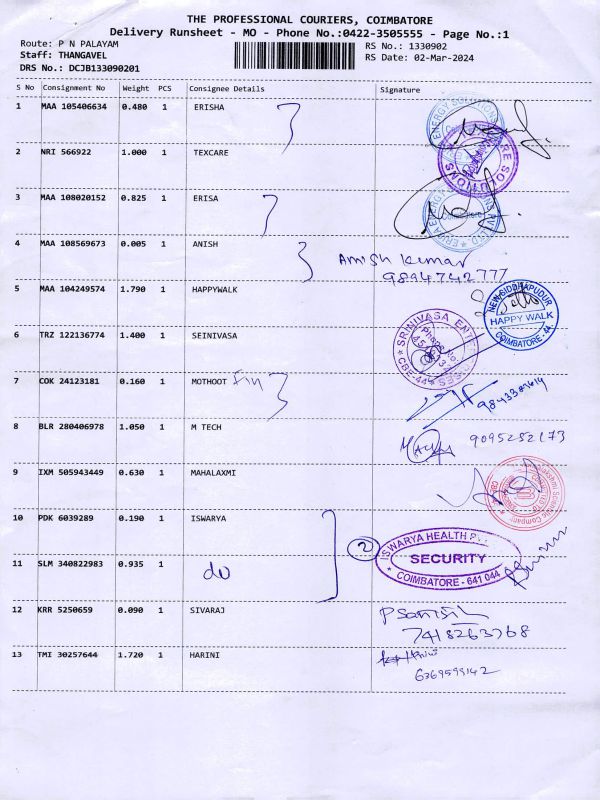 THE PROFESSIONAL COURIERS, COIMBATORE
Delivery Runsheet - MO - Phone No.:0422-3505555 - Page No.:1
Route: P N PALAYAM
RS No.: 1330902
Staff: THANGAVEL
RS Date: 02-Mar-2024
DRS No.: DCJB133090201
S No Consignment No Weight PCS Consignee Details Signature
1 MAA 105406634 0.480 1 ERISHA
2 NRI 566922 1.000 1 TEXCARE
3 MAA 108020152 0.825 1 ERISA
4 MAA 108569673 0.005 1 ANISH
Amish Kumar
9894742777
5 MAA 104249574 1.790 1 HAPPYWALK
NEW SIDDHAPUDUR
HAPPY WALK
COIMBATORE - 44
6 TRZ 122136774 1.400 1 SEINIVASA
SRINIVASA
CBE-44
7 COK 24123181 0.160 1 MOTHOOT Fin
8 BLR 280406978 1.050 1 M TECH
9095252173
9 IXM 505943449 0.630 1 MAHALAXMI
10 PDK 6039289 0.190 1 ISWARYA
2
ISWARYA HEALTH
SECURITY
COIMBATORE - 641 044
11 SLM 340822983 0.935 1 do
12 KRR 5250659 0.090 1 SIVARAJ
7418263768
13 TMI 30257644 1.720 1 HARINI
6369599142